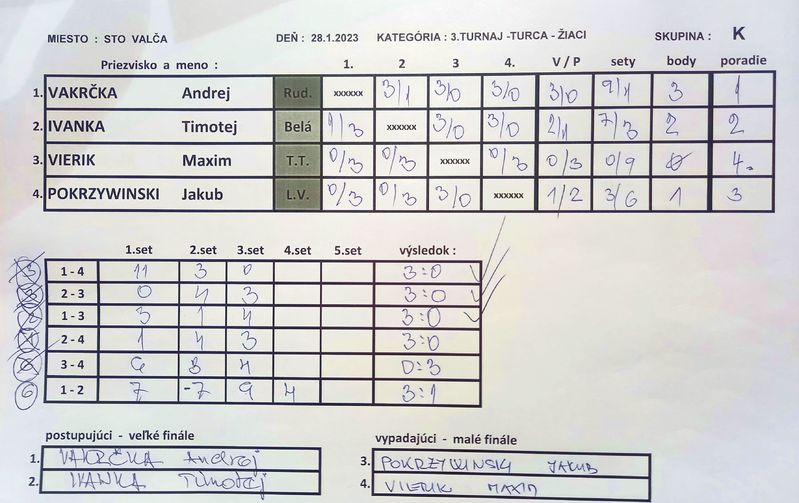 MIESTO : STO VALČA DEŇ : 28.1.2023 KATEGÓRIA : 3.TURNAJ -TURCA - ŽIACI SKUPINA : K
Priezvisko a meno : 1. 2 3 4. V / P sety body poradie
1. VAKRČKA Andrej Rud. xxxxxx 3/1 3/0 3/0 3/0 9/1 3 1
2. IVANKA Timotej Belá 1/3 xxxxxx 3/0 3/0 2/1 7/3 2 2
3. VIERIK Maxim T.T. 0/3 0/3 xxxxxx 0/3 0/3 0/9 0 4.
4. POKRZYWINSKI Jakub L.V. 0/3 0/3 3/0 xxxxxx 1/2 3/6 1 3
1.set 2.set 3.set 4.set 5.set výsledok :
1 - 4 11 3 0 3:0
2 - 3 0 4 3 3:0
1 - 3 3 1 4 3:0
2 - 4 1 4 3 3:0
3 - 4 6 8 4 0:3
6 1 - 2 7 -7 9 4 3:1
postupujúci - veľké finále
1. VAKRČKA Andrej
2. IVANKA Timotej
vypadajúci - malé finále
3. POKRZYWINSKY JAKUB
4. VIERIK MAXIM